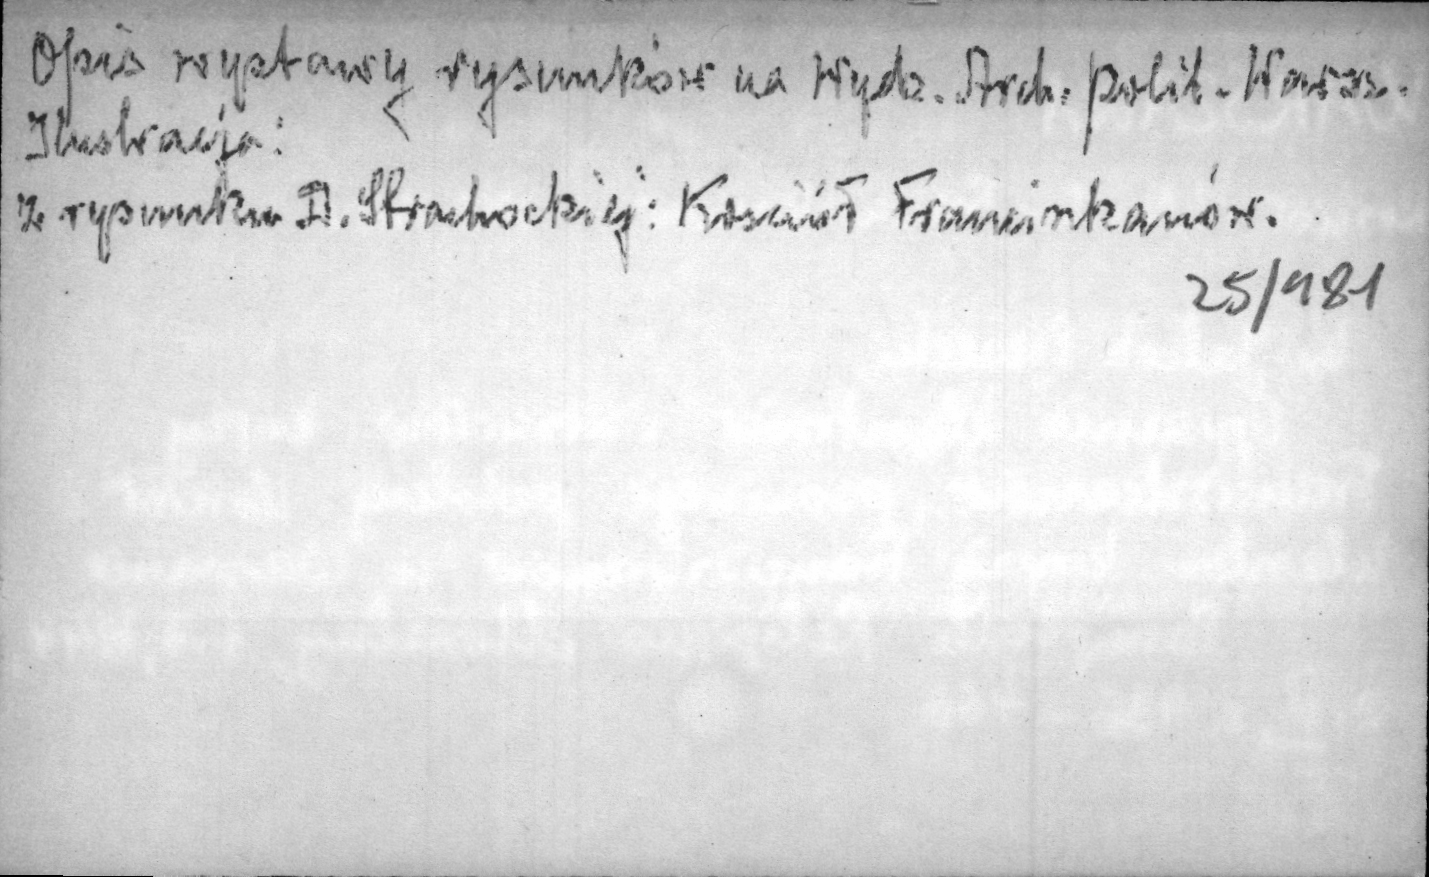 Opis wystawy rysunków na Wydz. Arch. Polit. Warsz.
Ilustracja:
z rysunku D. Strachockiej: Kościół Franciszkanów.
25/981